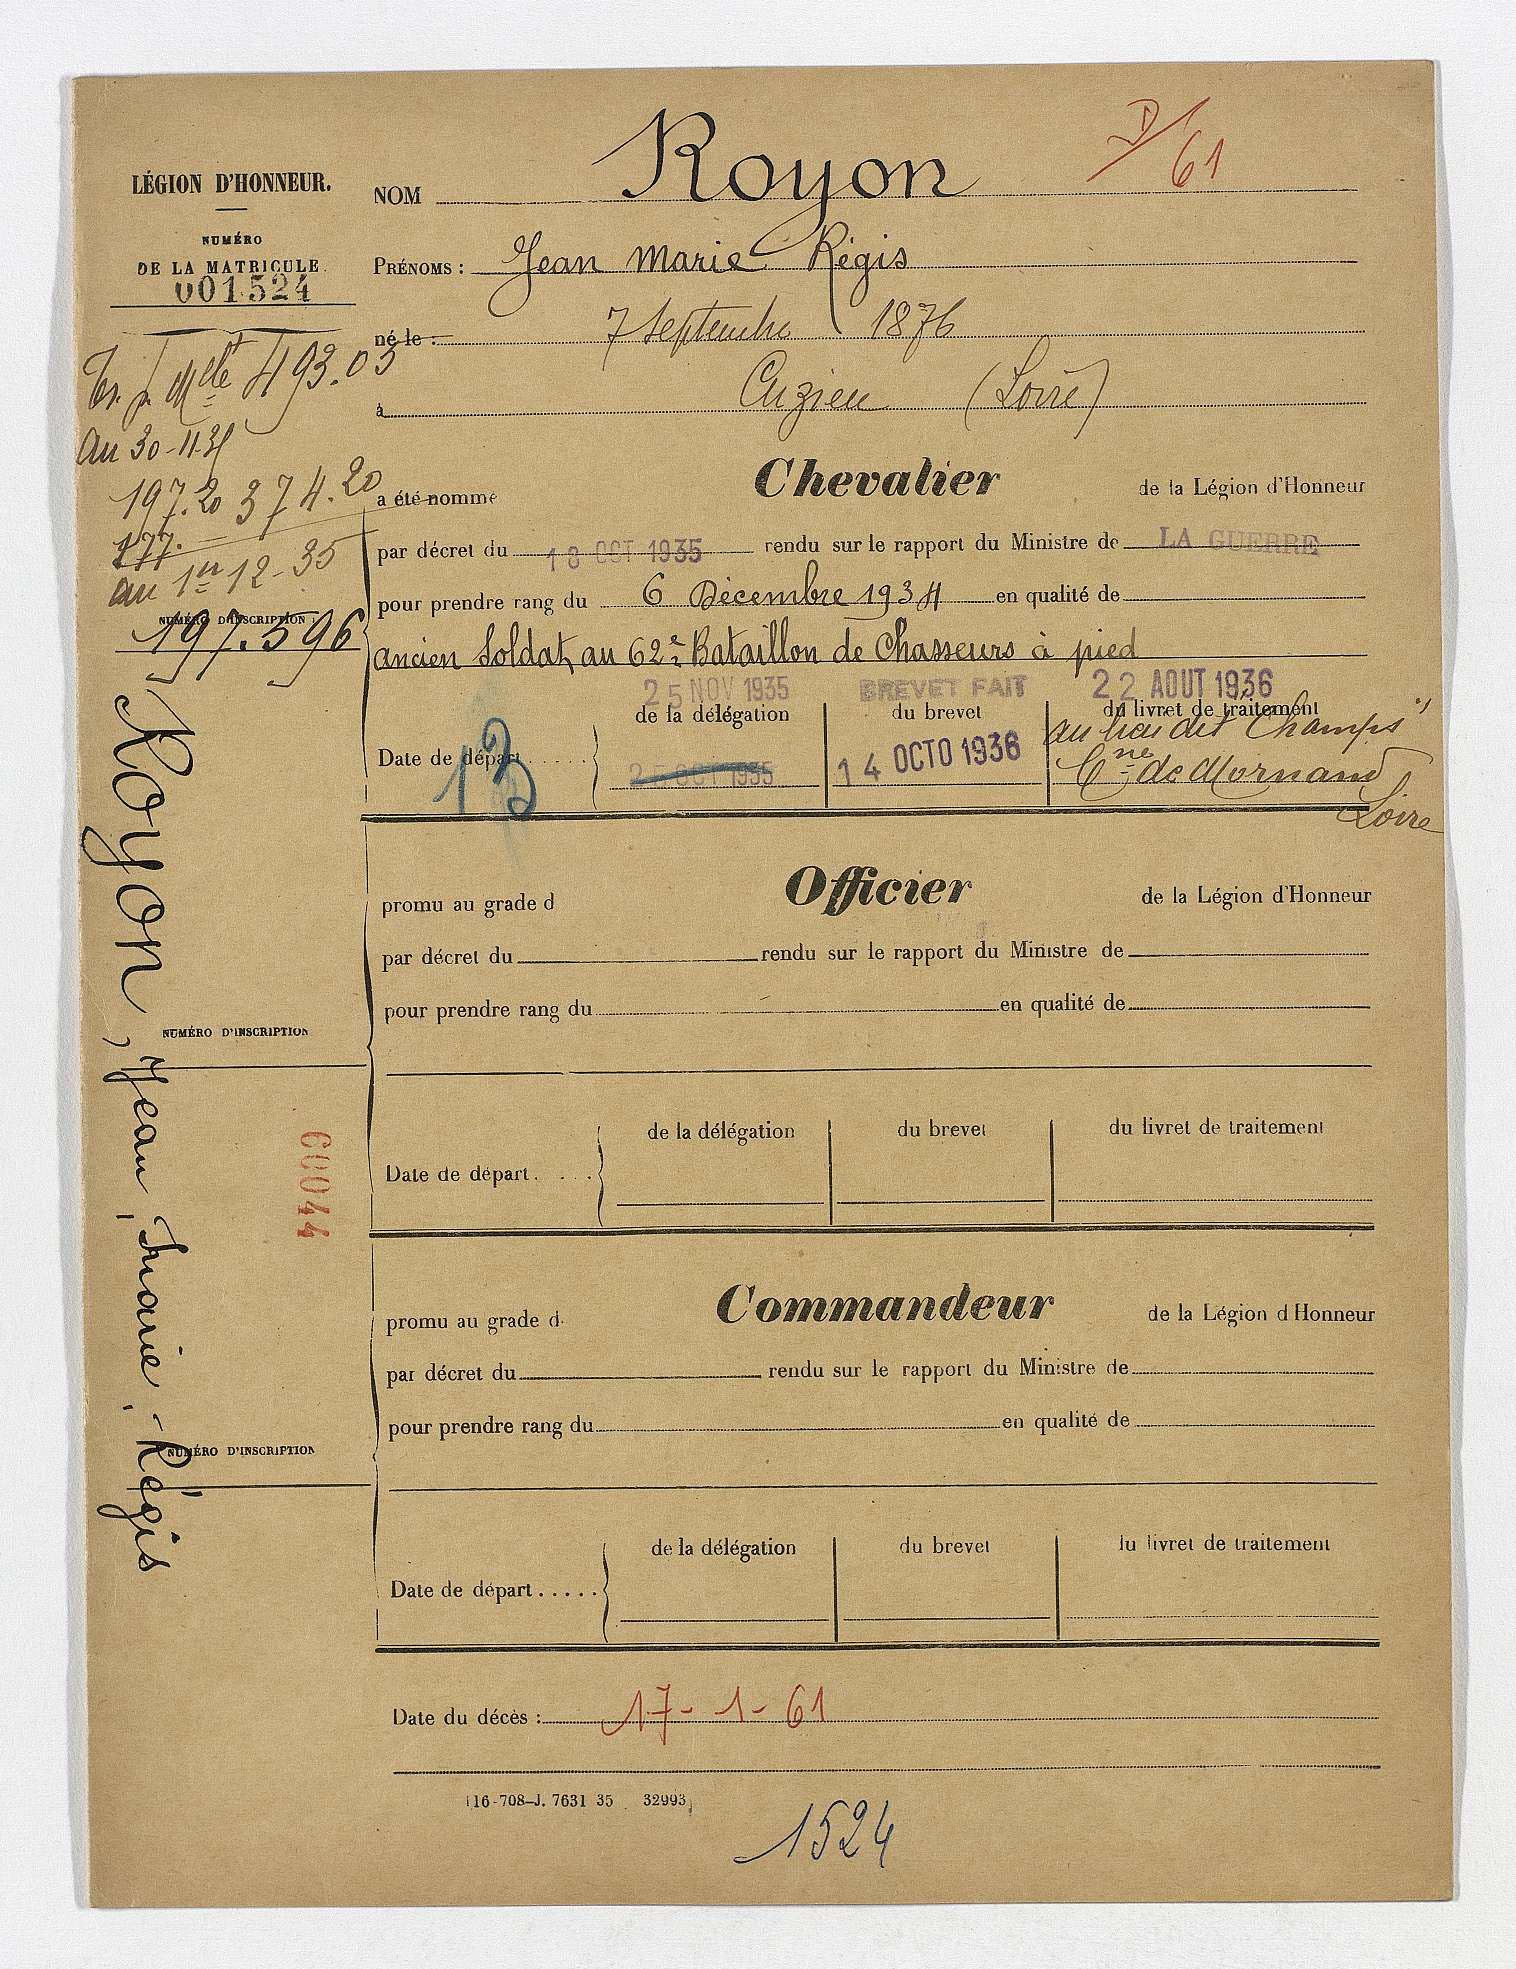 Royon
D/61
LÉGION D'HONNEUR.
NOM
NUMÉRO
DE LA MATRICULE
001524
PRÉNOMS : Jean Marie Régis
né le : 7 Septembre 1876
à Cuzien (Loire)
Mle 493.03
au 30-11-35
197.20 374.20
177.
au 1er 12-35
NUMÉRO D'INSCRIPTION
197.596
a été nommé Chevalier de la Légion d'Honneur
par décret du 18 OCT 1935 rendu sur le rapport du Ministre de LA GUERRE
pour prendre rang du 6 Décembre 1934 en qualité de
ancien Soldat au 62e Bataillon de Chasseurs à pied
25 NOV 1935 BREVET FAIT 22 AOUT 1936
de la délégation du brevet du livret de traitement
au lieu dit "Champs"
Date de départ..... 25 OCT 1935 14 OCTO 1936 Cne de Mornand
Loire
13
promu au grade d Officier de la Légion d'Honneur
par décret du rendu sur le rapport du Ministre de
pour prendre rang du en qualité de
NUMÉRO D'INSCRIPTION
de la délégation du brevet du livret de traitement
Date de départ.....
00044
promu au grade d Commandeur de la Légion d'Honneur
par décret du rendu sur le rapport du Ministre de
pour prendre rang du en qualité de
NUMÉRO D'INSCRIPTION
de la délégation du brevet du livret de traitement
Date de départ.....
Royon, Jean, Marie, Régis
Date du décès : 17-1-61
116-708-J. 7631 35 32993
1524